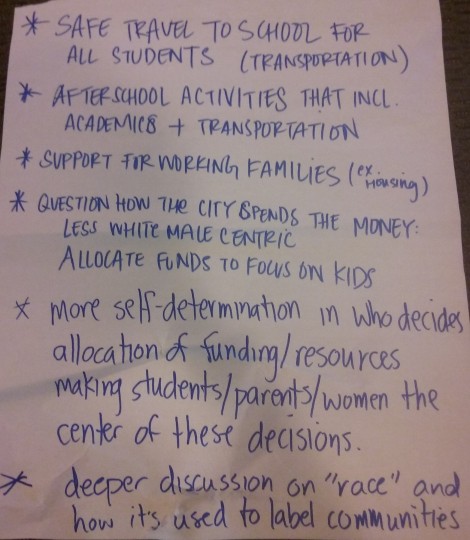 * SAFE TRAVEL TO SCHOOL FOR
ALL STUDENTS (TRANSPORTATION)
* AFTERSCHOOL ACTIVITIES THAT INCL.
ACADEMICS + TRANSPORTATION
* SUPPORT FOR WORKING FAMILIES (ex. Housing)
* QUESTION HOW THE CITY SPENDS THE MONEY:
LESS WHITE MALE CENTRIC
ALLOCATE FUNDS TO FOCUS ON KIDS
* more self-determination in who decides
allocation of funding/resources
making students/parents/women the
center of these decisions.
* deeper discussion on "race" and
how it's used to label communities